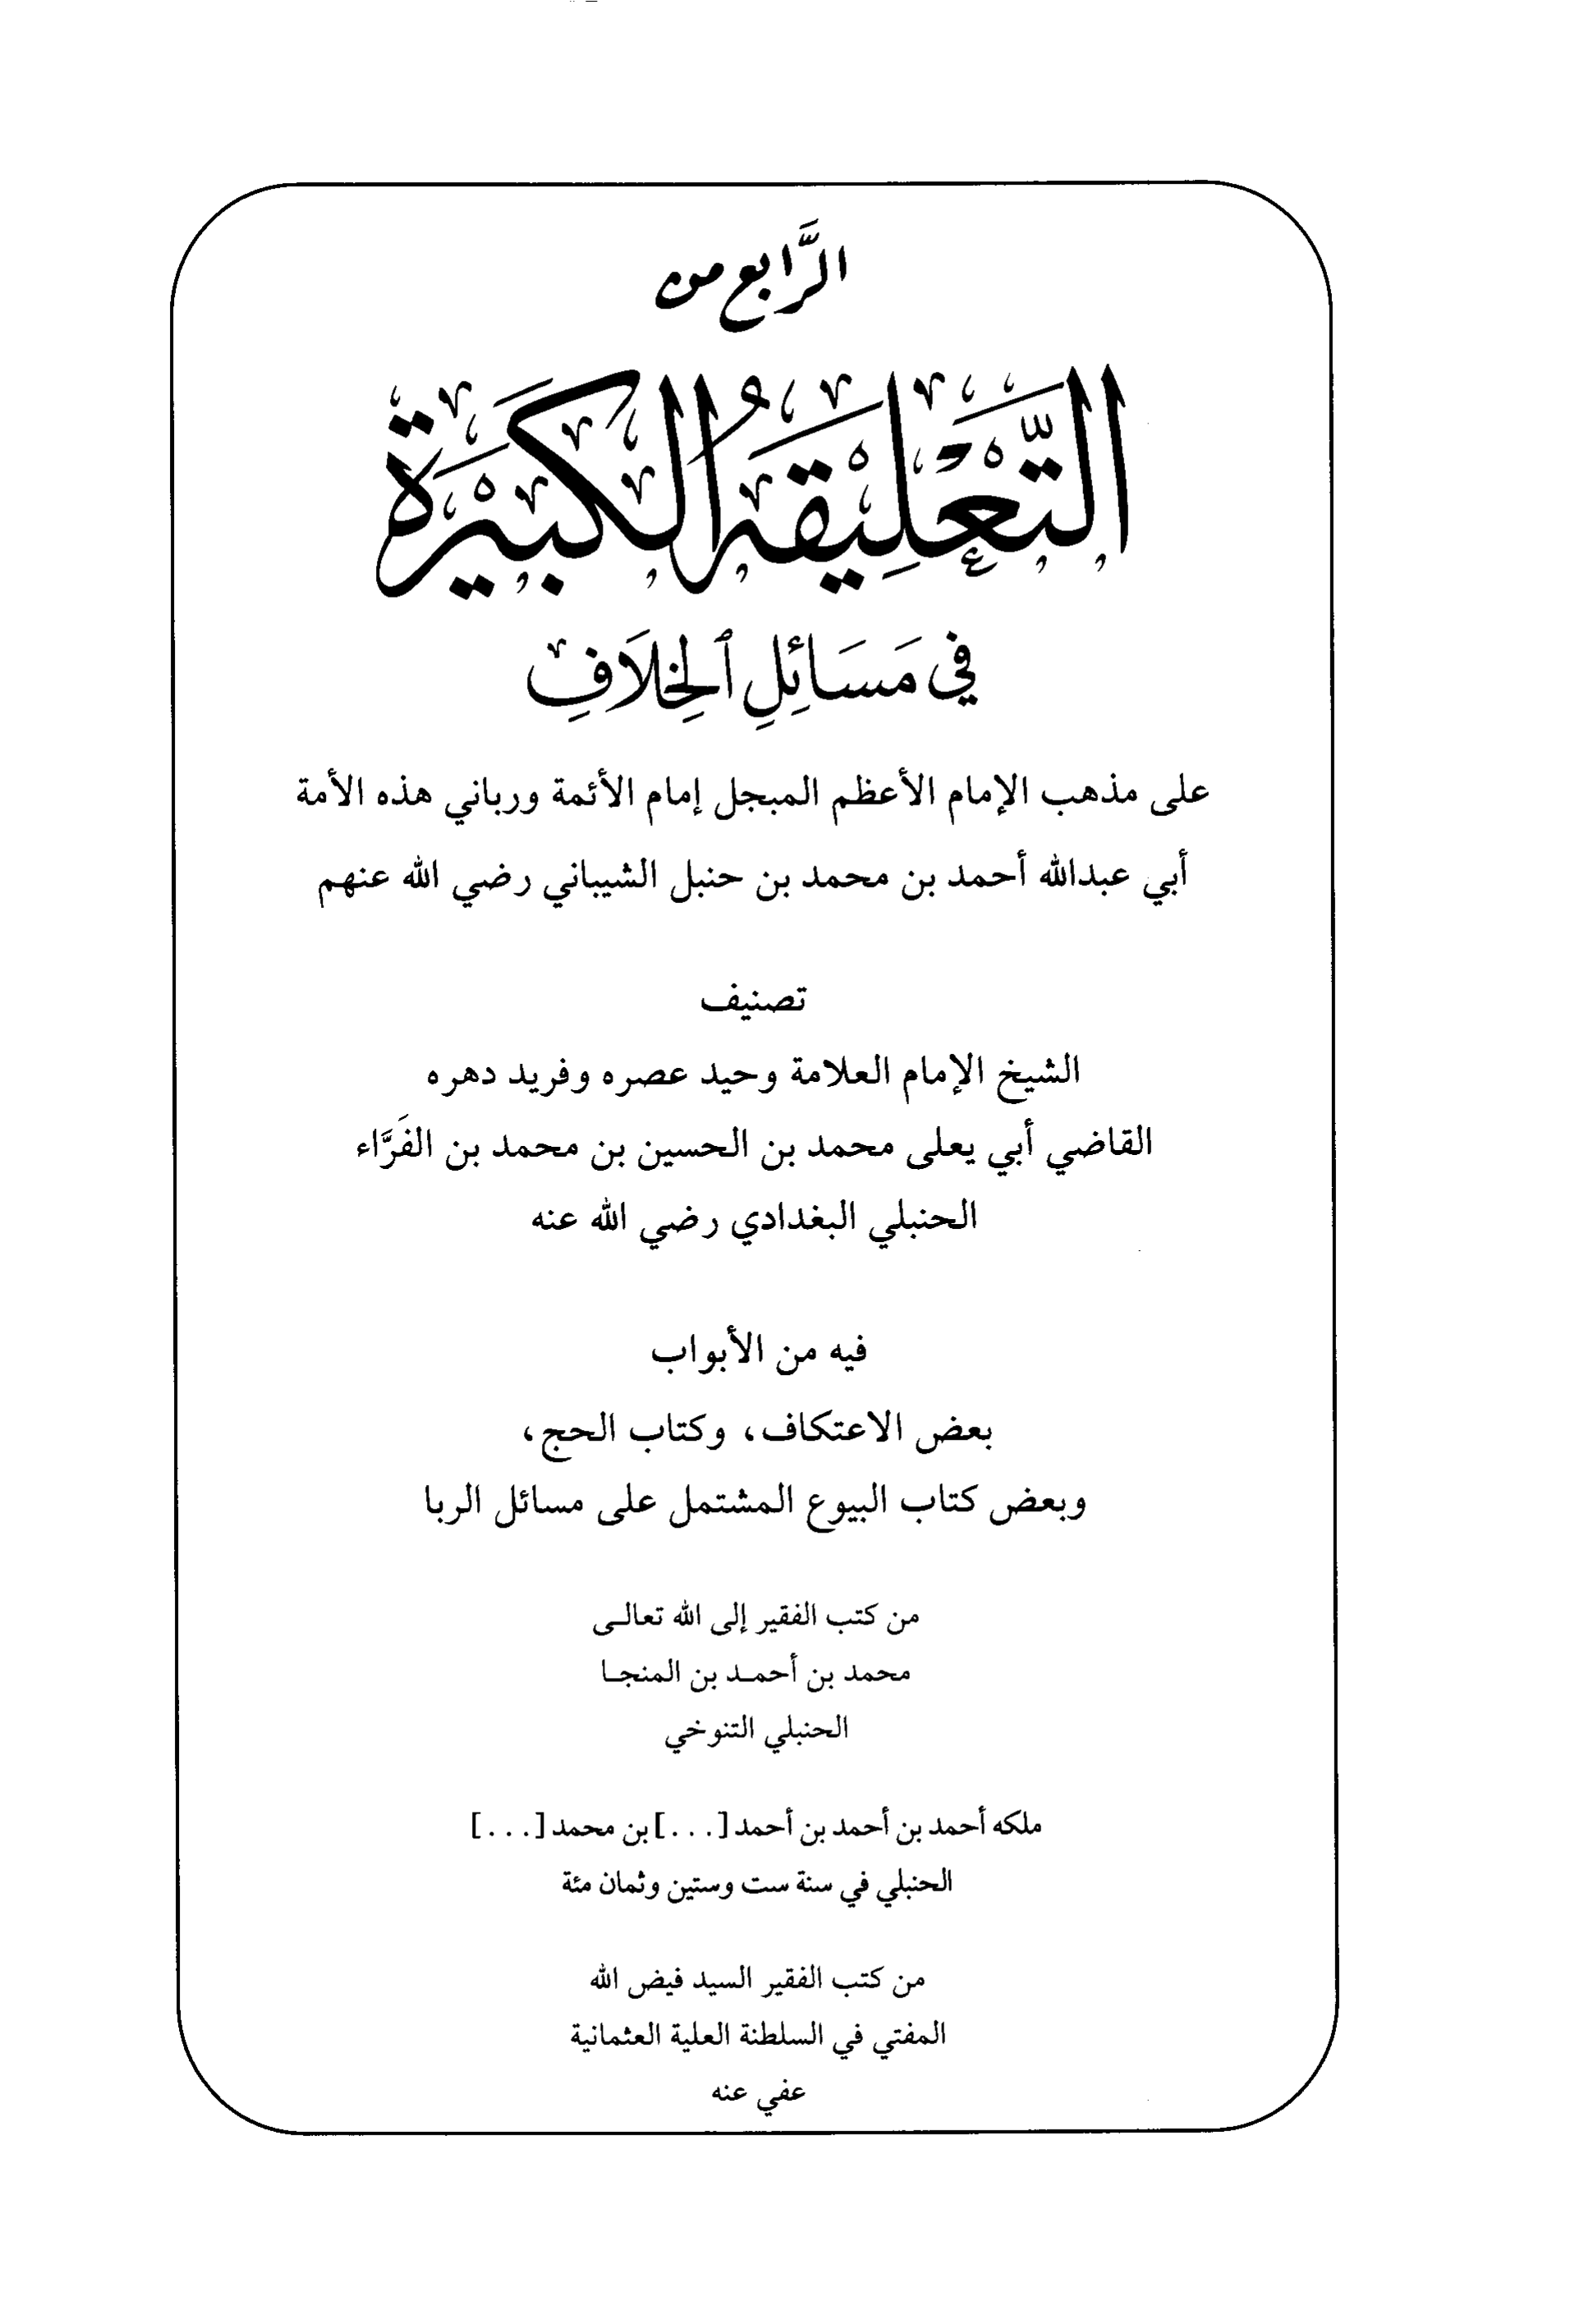 الرَّابع من
التَّعْلِيقَةُ الكَبِيْرَة
في مَسَائِلِ ٱلخِلَافِ
على مذهب الإمام الأعظم المبجل إمام الأئمة ورباني هذه الأمة
أبي عبدالله أحمد بن محمد بن حنبل الشيباني رضي الله عنهم
تصنيف
الشيخ الإمام العلامة وحيد عصره وفريد دهره
القاضي أبي يعلى محمد بن الحسين بن محمد بن الفَرَّاء
الحنبلي البغدادي رضي الله عنه
فيه من الأبواب
بعض الاعتكاف، وكتاب الحج،
وبعض كتاب البيوع المشتمل على مسائل الربا
من كتب الفقير إلى الله تعالـى
محمد بن أحمـد بن المنجـا
الحنبلي التنوخي
ملكه أحمد بن أحمد بن أحمد [...] بن محمد [...]
الحنبلي في سنة ست وستين وثمان مئة
من كتب الفقير السيد فيض الله
المفتي في السلطنة العلية العثمانية
عفي عنه